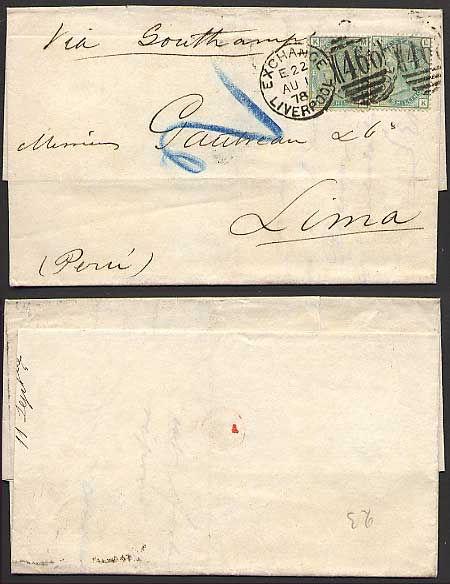 Via Southamp
EXCHANGE
E 22
AU 1
78
LIVERPOOL
466
Messieurs
& Co
Lima
(Perú)
11 Sept
23